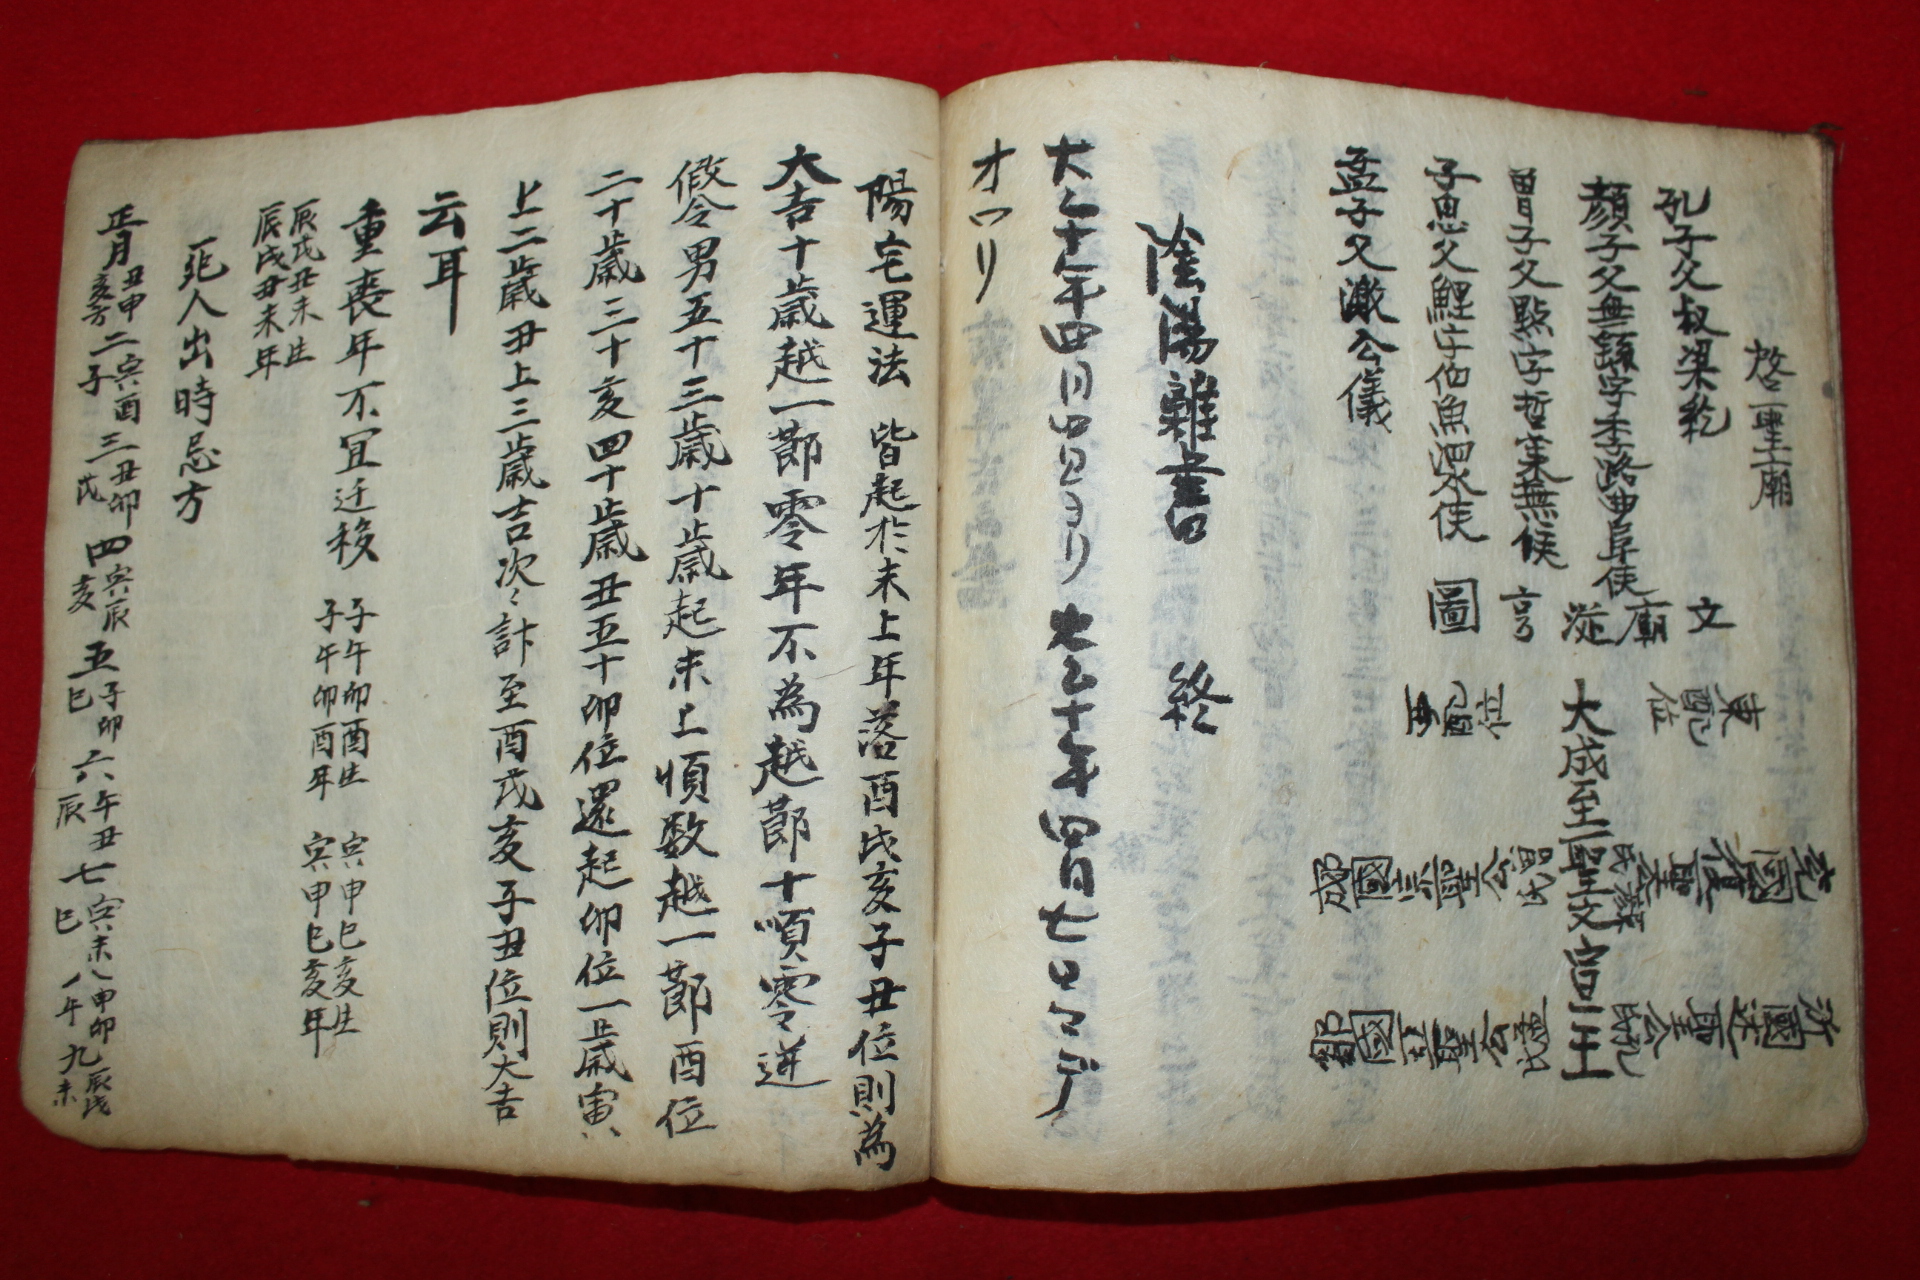 啓聖廟
孔子父叔梁紇
顔子父無繇字季路曲阜侯
曾子父點字哲萊蕪侯
子思父鯉字伯魚泗水侯
孟子父激公儀
文廟從享圖
東配位
大成至聖文宣王
西配位
兗國復聖公顔氏
沂國述聖公孔氏
郕國宗聖公曽氏
鄒國亞聖公孟氏
陰陽雜書 終
大正十年四月四日ヨリ大正十年四月七日マデ
オワリ
陽宅運法 皆起於未上年落酉戌亥子丑位則為
大吉十歲越一節零年不為越節十順零逆
假令男五十三歲十歲起未上順数越一節酉位
二十歲三十亥四十歲丑五十卯位還起卯位一歲寅
上二歲丑上三歲吉次〻計至酉戌亥子丑位則大吉
云耳
重喪年不宜迁移 子午卯酉生 子午卯酉年 寅申巳亥生 寅申巳亥年
辰戌丑未生 辰戌丑未年
死人出時忌方
正月丑申亥方 二寅酉子 三丑卯戌 四寅辰亥 五子卯巳 六午丑辰 七寅未巳 八申卯午 九辰戌未